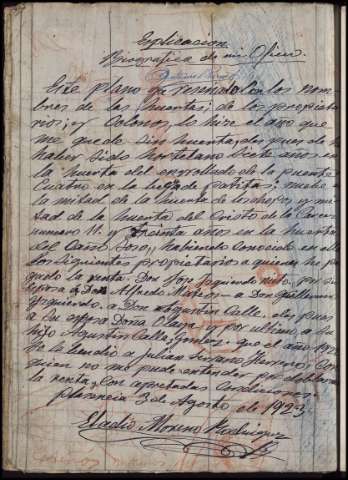 Explicacion
Biografica de mi Oficio
Este plano y reseñado con los nom-
bres de las huertas; de los propieta-
rios; y Colonos, lo hice el año que
me quede sin huerta, despues de
haber sido hortelano siete años en
la huerta del enrollado de la puente
Cuatro en la huerta de patitas; nueve en
la mitad de la huerta de los chopos, y mi-
tad de la huerta del Cristo de la
numero 11. y treinta años en la huerta
del Caño Soso, y habiendo Conocido en ella
los Siguientes propietarios a quienes he pa-
gado la renta. Don Jose Izquierdo
esposa a Don Alfredo Mateos a Don Guillermo
Izquierdo, a Don Agustin Calle, despues
a su esposa Doña Olaya y por ultimo a su
hijo Agustin Calle Gomez, que el año 192
se la vendio a Julian Serrano Herrero, Con
quien no me pude entender
la renta, con apretadas condiciones.
plasencia 3 de Agosto de 1923
Eladio Moreno Rodriguez